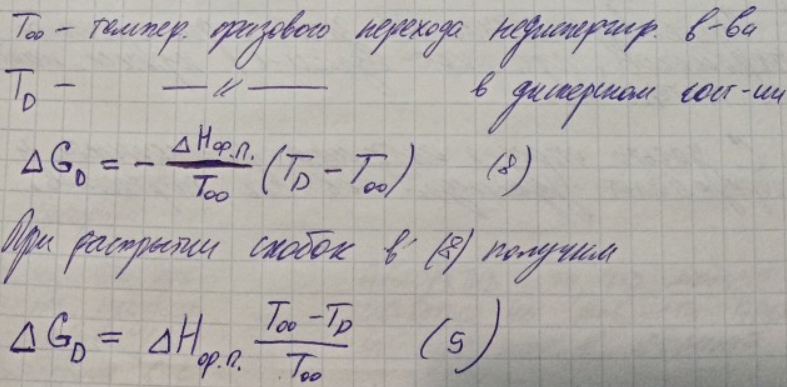 T∞ – темпер. фазового перехода недиспергир. в-ва
T_D – —〃— в дисперсном сост-ии
ΔG_D = - ΔHф.п./T∞ (T_D - T∞) (8)
При раскрытии скобок в (8) получим
ΔG_D = ΔHф.п. (T∞ - T_D)/T∞ (9)